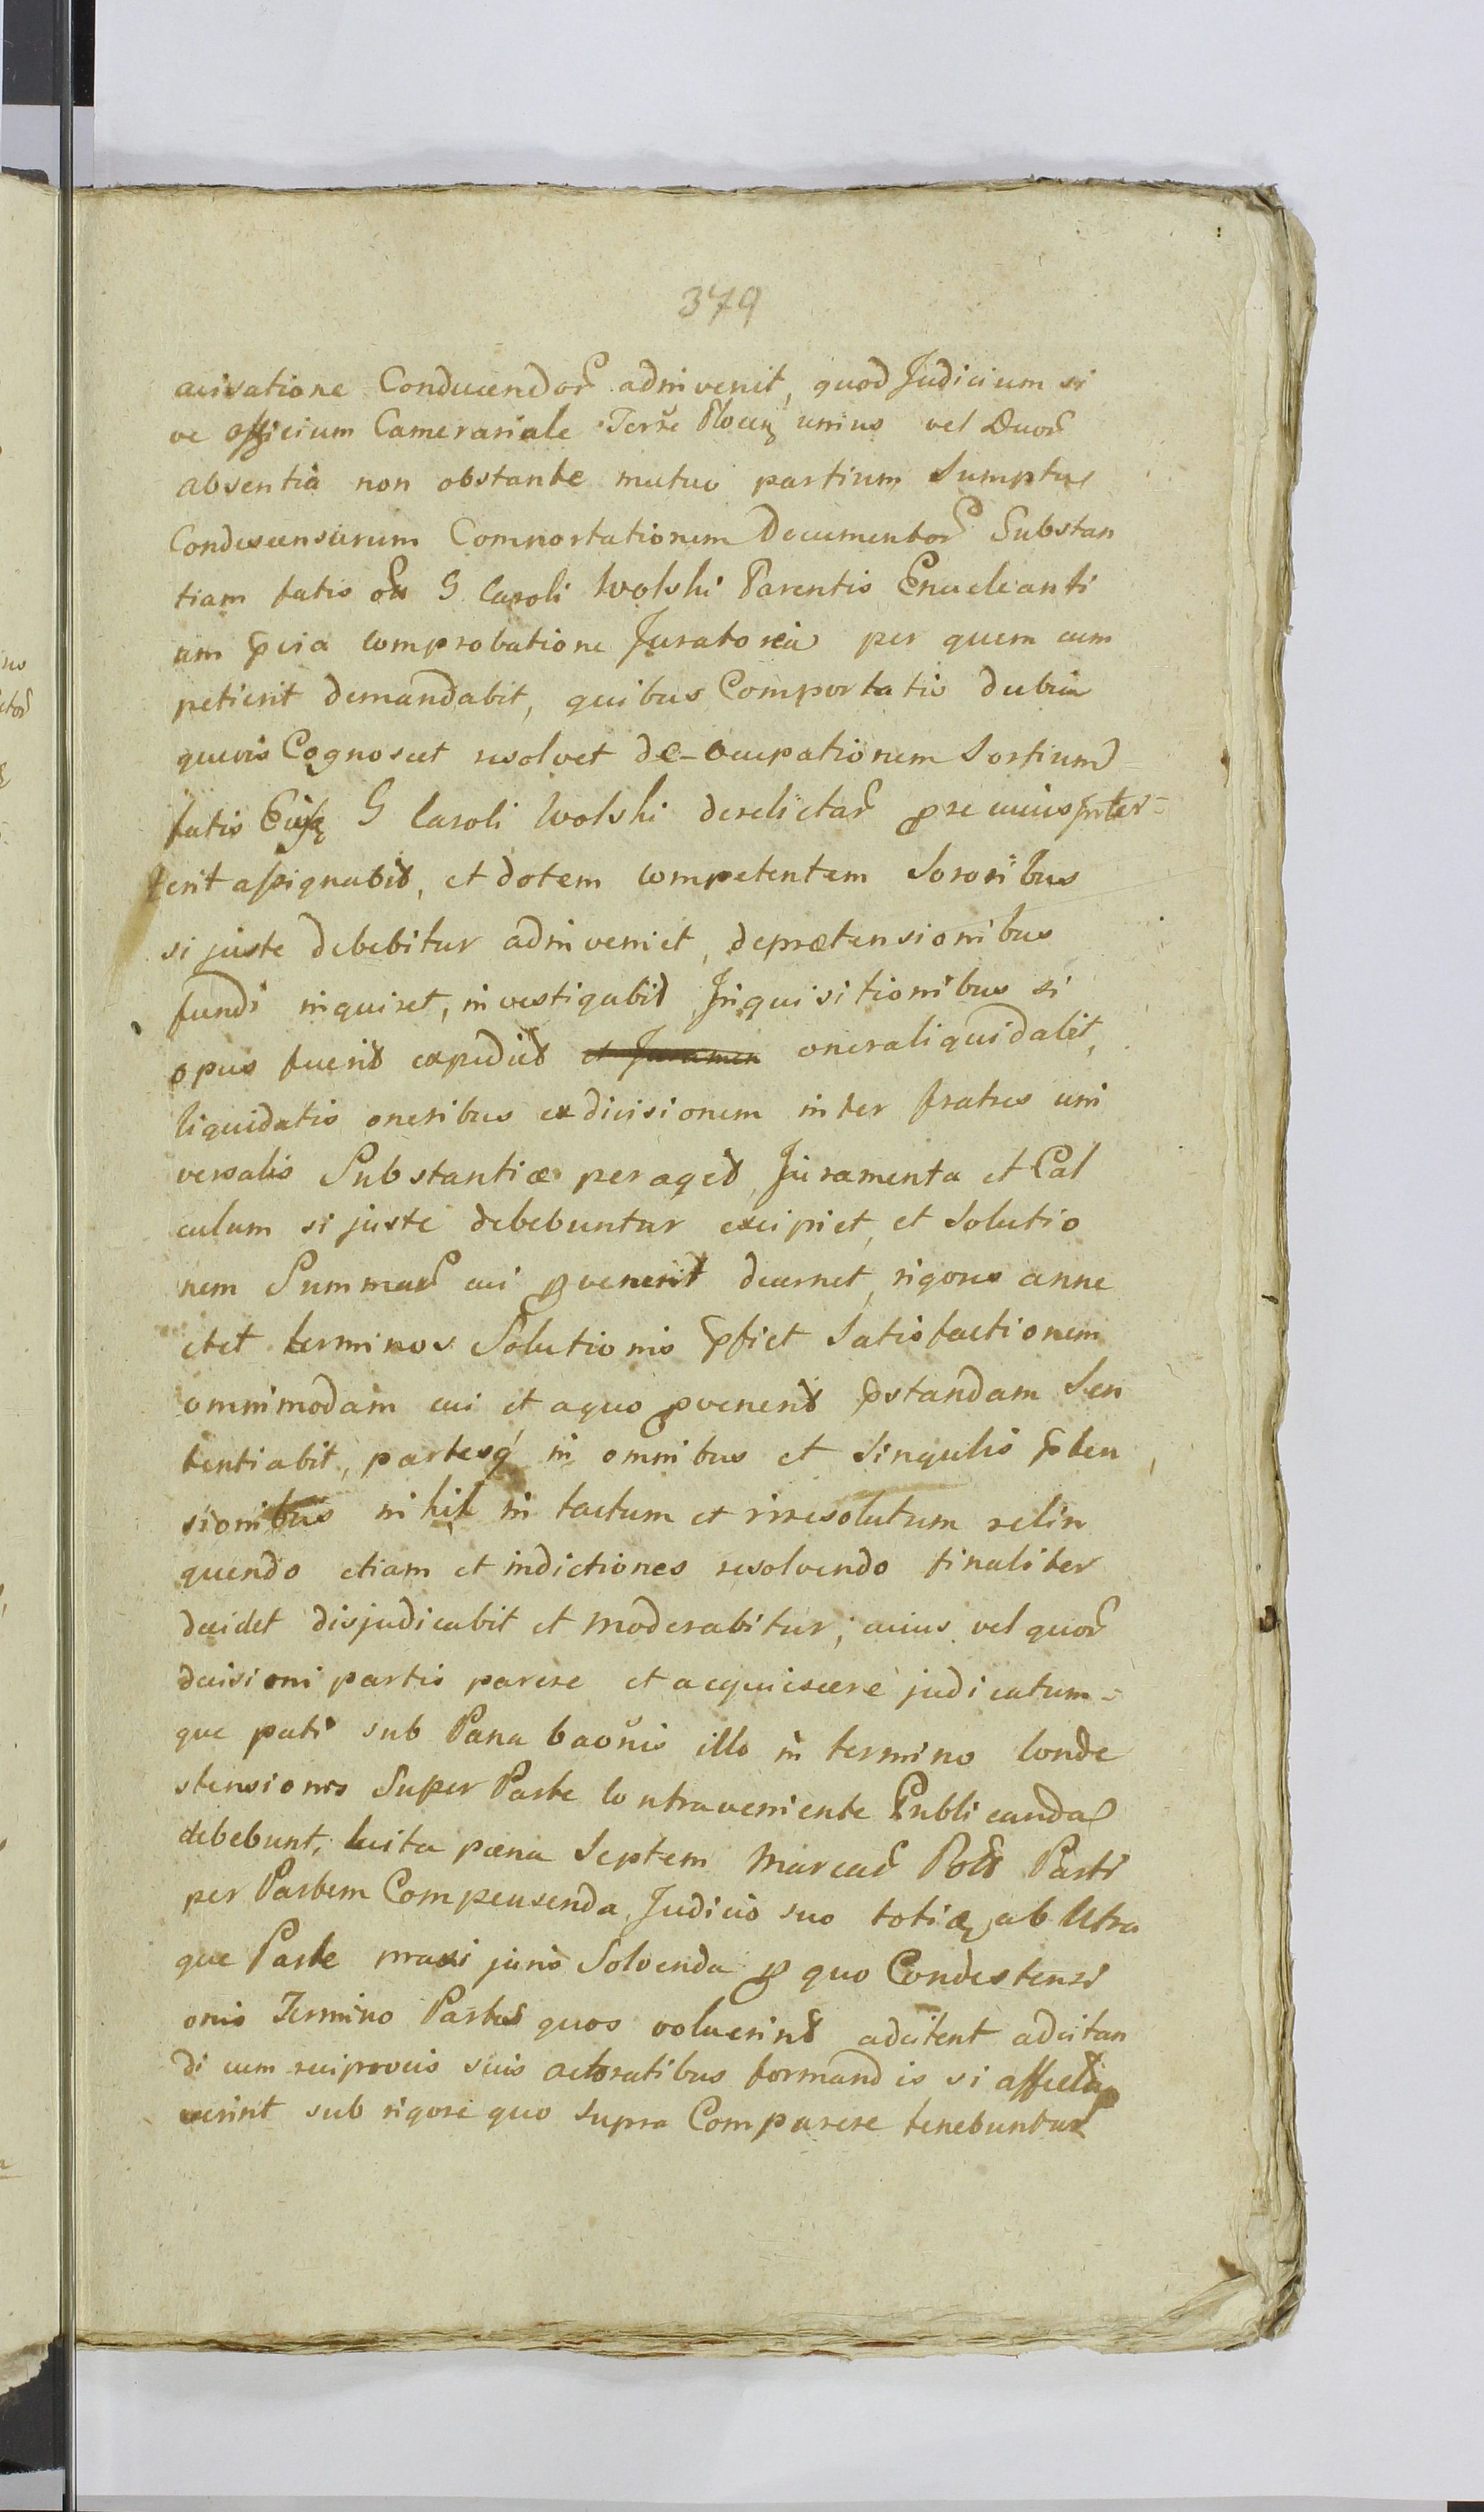 379
avisatione Conducendor adinvenit, quod Judicium si
ve officium Camerariale Terre Plocen unius vel Duor
absentia non obstante mutuo partium Sumptu
Condescensurum Comportationem Documentor Substan
tiam fatis G Caroli Wolski Parentis Enucleanti
um pvia comprobatione Juratoria per quem cum
petierit demandabit, quibus Comportatis dubia
quevis Cognoscet resolvet de occupationem Sortium
fatis G Caroli Wolski derelictar
assignabit, et dotem competentem Sororibus
si juste debebitur adinveniet, depraetensionibus
fundi inquiret, investigabit Inquisitionibus si
opus fuerit expediet et Juramen onera liquidabit,
liquidatis oneribus ex divisionem inter fratres uni
versalis Substantiæ peraget Juramenta et Cal
culum si juste debebuntur excipiet, et Solutio
nem Summar cui pvenerit decernet, rigores anne
ctet terminos Solutionis pfiet Satisfactionem
omnimodam cui et aquo pvenerit pstandam Sen
tentiabit, partesq in omnibus et Singulis pten
sionibus nihil in tactum et irresolutum relin
quendo etiam et indictiones resolvendo finaliter
decidet disjudicabit et moderabitur, cuius vel quor
decisioni partis parere et acquiescere judicatum
que pati sub Pana baonis illo in termino Conde
stensionis Super Parte Contraveniente Publicanda
debebunt, luita pæna Septem Marcar Pol Parti
per Partem Compensenda Judicio suo toties ab Utra
que Parte praxi juris Solvenda p quo Condestensi
onis Termino Partes quos voluerint adcitent adcitan
di cum reciprocis suis actoratibus formandis si affecta
verint sub rigore quo Supra Comparere tenebuntur